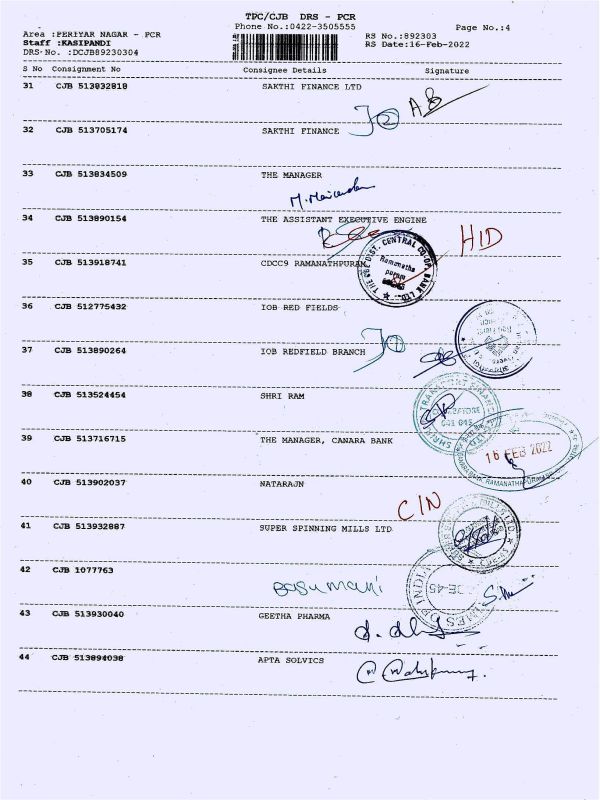 TPC/CJB DRS - PCR
Phone No.:0422-3505555 Page No.:4
Area :PERIYAR NAGAR - PCR RS No.:892303
Staff :KASIPANDI RS Date:16-Feb-2022
DRS-No. :DCJB89230304
S No Consignment No Consignee Details Signature
31 CJB 513832818 SAKTHI FINANCE LTD
32 CJB 513705174 SAKTHI FINANCE
33 CJB 513834509 THE MANAGER
34 CJB 513890154 THE ASSISTANT EXECUTIVE ENGINE
HID
35 CJB 513918741 CDCC9 RAMANATHPURAM
DIST. CENTRAL CO-OP BANK LTD.
Ramanatha
puram
36 CJB 512775432 IOB RED FIELDS
37 CJB 513890264 IOB REDFIELD BRANCH
38 CJB 513524454 SHRI RAM
39 CJB 513716715 THE MANAGER, CANARA BANK
16 FEB 2022
40 CJB 513902037 NATARAJN
CIN
41 CJB 513932887 SUPER SPINNING MILLS LTD
42 CJB 1077763
Basumani
43 CJB 513930040 GEETHA PHARMA
44 CJB 513894038 APTA SOLVICS